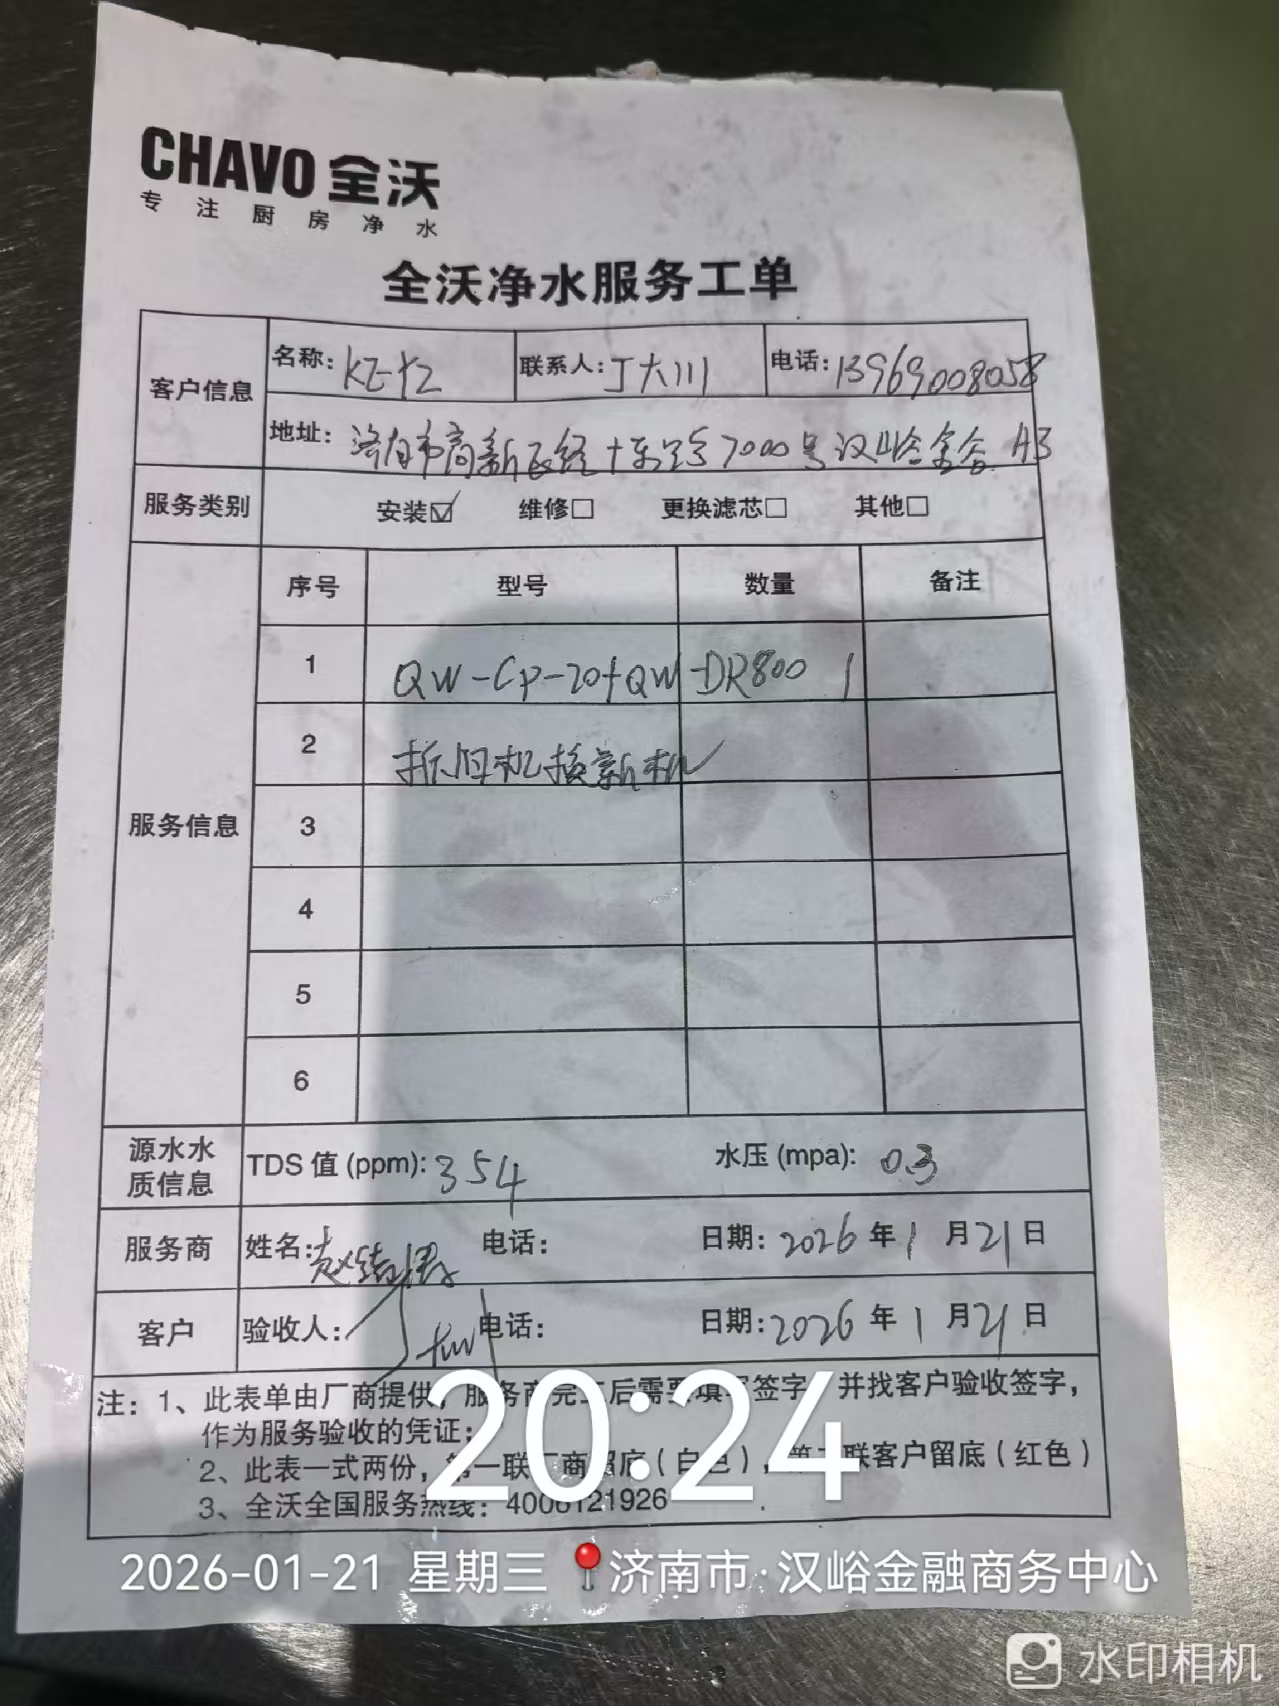 CHAVO 全沃
专注厨房净水
全沃净水服务工单
客户信息 名称: 联系人: 丁大川 电话: 13969008058
地址: 济南市高新区经十东路7000号汉峪金谷 A3
服务类别 安装☑ 维修□ 更换滤芯□ 其他□
服务信息 序号 型号 数量 备注
1 QW-CP-20+QW-DR800 1
2 拆旧机换新机
3
4
5
6
源水水质信息 TDS 值 (ppm): 354 水压 (mpa): 0.3
服务商 姓名: 赵 电话: 日期: 2026 年 1 月 21 日
客户 验收人: 电话: 日期: 2026 年 1 月 21 日
注: 1、此表单由厂商提供，服务商完工后需要填写签字，并找客户验收签字，
作为服务验收的凭证;
2、此表一式两份，第一联厂商留底（白色），第二联客户留底（红色）
3、全沃全国服务热线: 4006121926
20:24
2026-01-21 星期三 济南市·汉峪金融商务中心
水印相机